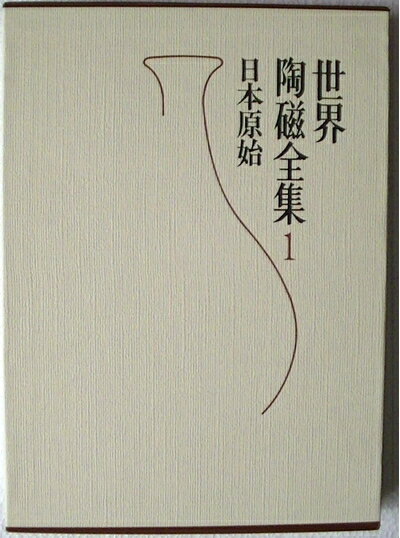 世界
陶磁全集1
日本原始